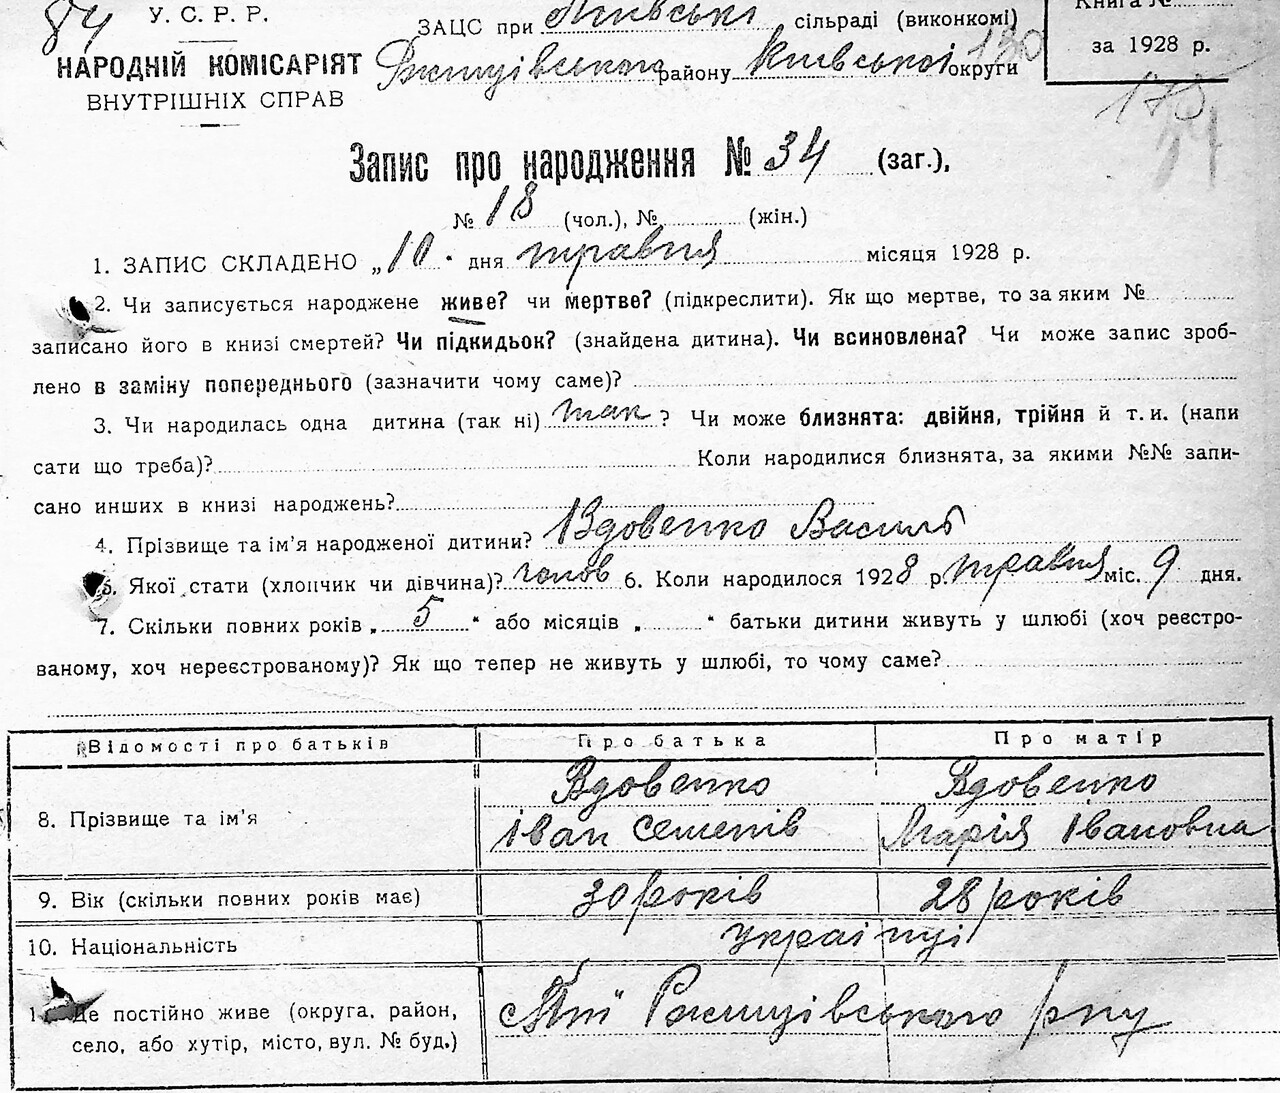 84
У. С. Р. Р.
НАРОДНІЙ КОМІСАРІЯТ
ВНУТРІШНІХ СПРАВ
ЗАЦС при сільраді (виконкомі)
Ржищівського району Київської округи
130
Книга №
за 1928 р.
175
Запис про народження № 34 (заг.),
№ 18 (чол.), № (жін.)
1. ЗАПИС СКЛАДЕНО „10" дня травня місяця 1928 р.
2. Чи записується народжене живе? чи мертве? (підкреслити). Як що мертве, то за яким №
записано його в книзі смертей? Чи підкидьок? (знайдена дитина). Чи всиновлена? Чи може запис зроб-
лено в заміну попереднього (зазначити чому саме)?
3. Чи народилась одна дитина (так ні) так ? Чи може близнята: двійня, трійня й т. и. (напи
сати що треба)? Коли народилися близнята, за якими №№ запи-
сано инших в книзі народжень?
4. Прізвище та ім'я народженої дитини? Вдовенко Василь
5. Якої стати (хлопчик чи дівчина)? чолов 6. Коли народилося 1928 р. травня міс. 9 дня.
7. Скільки повних років „ 5 " або місяців „ " батьки дитини живуть у шлюбі (хоч реєстро-
ваному, хоч нереєстрованому)? Як що тепер не живуть у шлюбі, то чому саме?
Відомості про батьків Про батька Про матір
8. Прізвище та ім'я Вдовенко Іван Семенів Вдовенко Марія Івановна
9. Вік (скільки повних років має) 30 років 28 років
10. Національність українці
Де постійно живе (округа, район,
село, або хутір, місто, вул. № буд.) Ржищівського р-ну